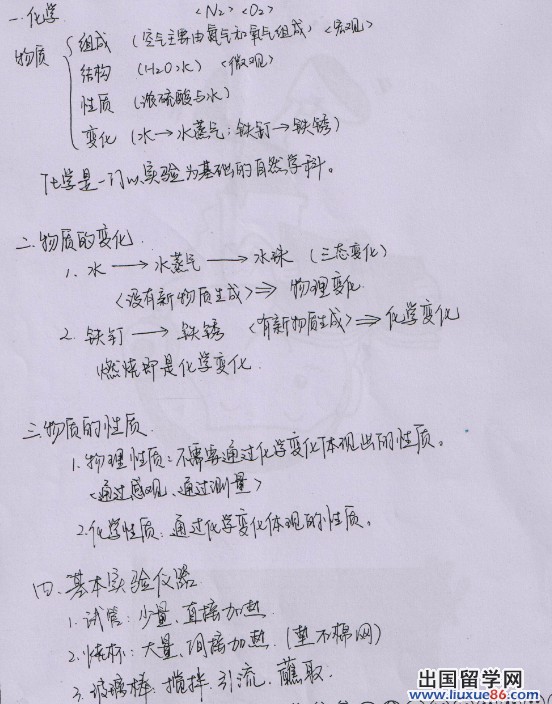 一.化学 <N2> <O2>
物质 组成 (空气主要由氮气和氧气组成) <宏观>
结构 (H2O水) <微观>
性质 (浓硫酸与水)
变化 (水→水蒸气;铁钉→铁锈)
化学是一门以实验为基础的自然学科。
二.物质的变化.
1. 水 → 水蒸气 → 水珠 (三态变化)
<没有新物质生成>⇒ 物理变化.
2. 铁钉 → 铁锈 <有新物质生成>⇒化学变化
燃烧即是化学变化.
三.物质的性质.
1.物理性质:不需要通过化学变化体现出的性质。
<通过感观、通过测量>
2.化学性质:通过化学变化体现的性质。
四.基本实验仪器.
1.试管:少量、直接加热.
2.烧杯:大量、间接加热.(垫石棉网)
3.玻璃棒:搅拌、引流、蘸取.
出国留学网
www.liuxue86.com